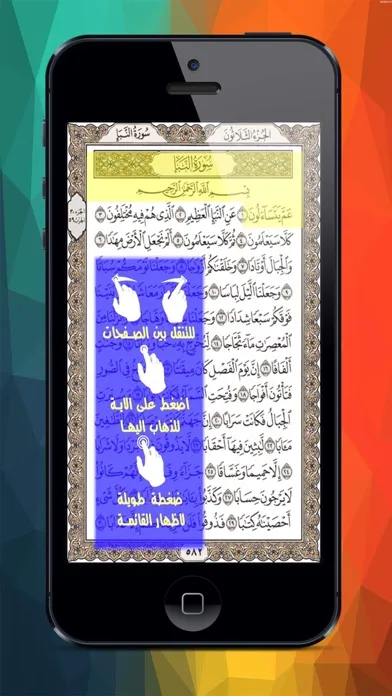 سُورَةُ النَّبَإِ
الجُزءُ الثَّلاثُونَ
سُورَةُ النَّبَإِ
بِسْمِ اللَّهِ الرَّحْمَٰنِ الرَّحِيمِ
عَمَّ يَتَسَاءَلُونَ ١ عَنِ النَّبَإِ الْعَظِيمِ ٢ الَّذِي هُمْ فِيهِ مُخْتَلِفُونَ ٣
كَلَّا سَيَعْلَمُونَ ٤ ثُمَّ كَلَّا سَيَعْلَمُونَ ٥ أَلَمْ نَجْعَلِ الْأَرْضَ مِهَٰدًا ٦
وَالْجِبَالَ أَوْتَادًا ٧ وَخَلَقْنَٰكُمْ أَزْوَٰجًا ٨ وَجَعَلْنَا نَوْمَكُمْ سُبَاتًا ٩
وَجَعَلْنَا الَّيْلَ لِبَاسًا ١٠ وَجَعَلْنَا
فَوْقَكُمْ سَبْعًا شِدَادًا ١٢
الْمُعْصِرَٰتِ مَاءً ثَجَّاجًا ١٤
أَلْفَافًا ١٦ إِنَّ يَوْمَ الْفَصْلِ كَانَ
فَتَأْتُونَ أَفْوَاجًا ١٨ وَفُتِحَتِ
الْجِبَالُ فَكَانَتْ سَرَابًا ٢٠
مَـَٔابًا ٢٢ لَّٰبِثِينَ فِيهَا أَحْقَابًا ٢٣ لَّا يَذُوقُونَ
إِلَّا حَمِيمًا وَغَسَّاقًا ٢٥
لَا يَرْجُونَ حِسَابًا ٢٧ وَكَذَّبُوا
أَحْصَيْنَٰهُ كِتَٰبًا ٢٩ فَذُوقُوا
٥٨٢
للتنقل بين الصفحات
اضغط على الاية
للذهاب اليها
ضغطة طويلة
لاظهار القائمة